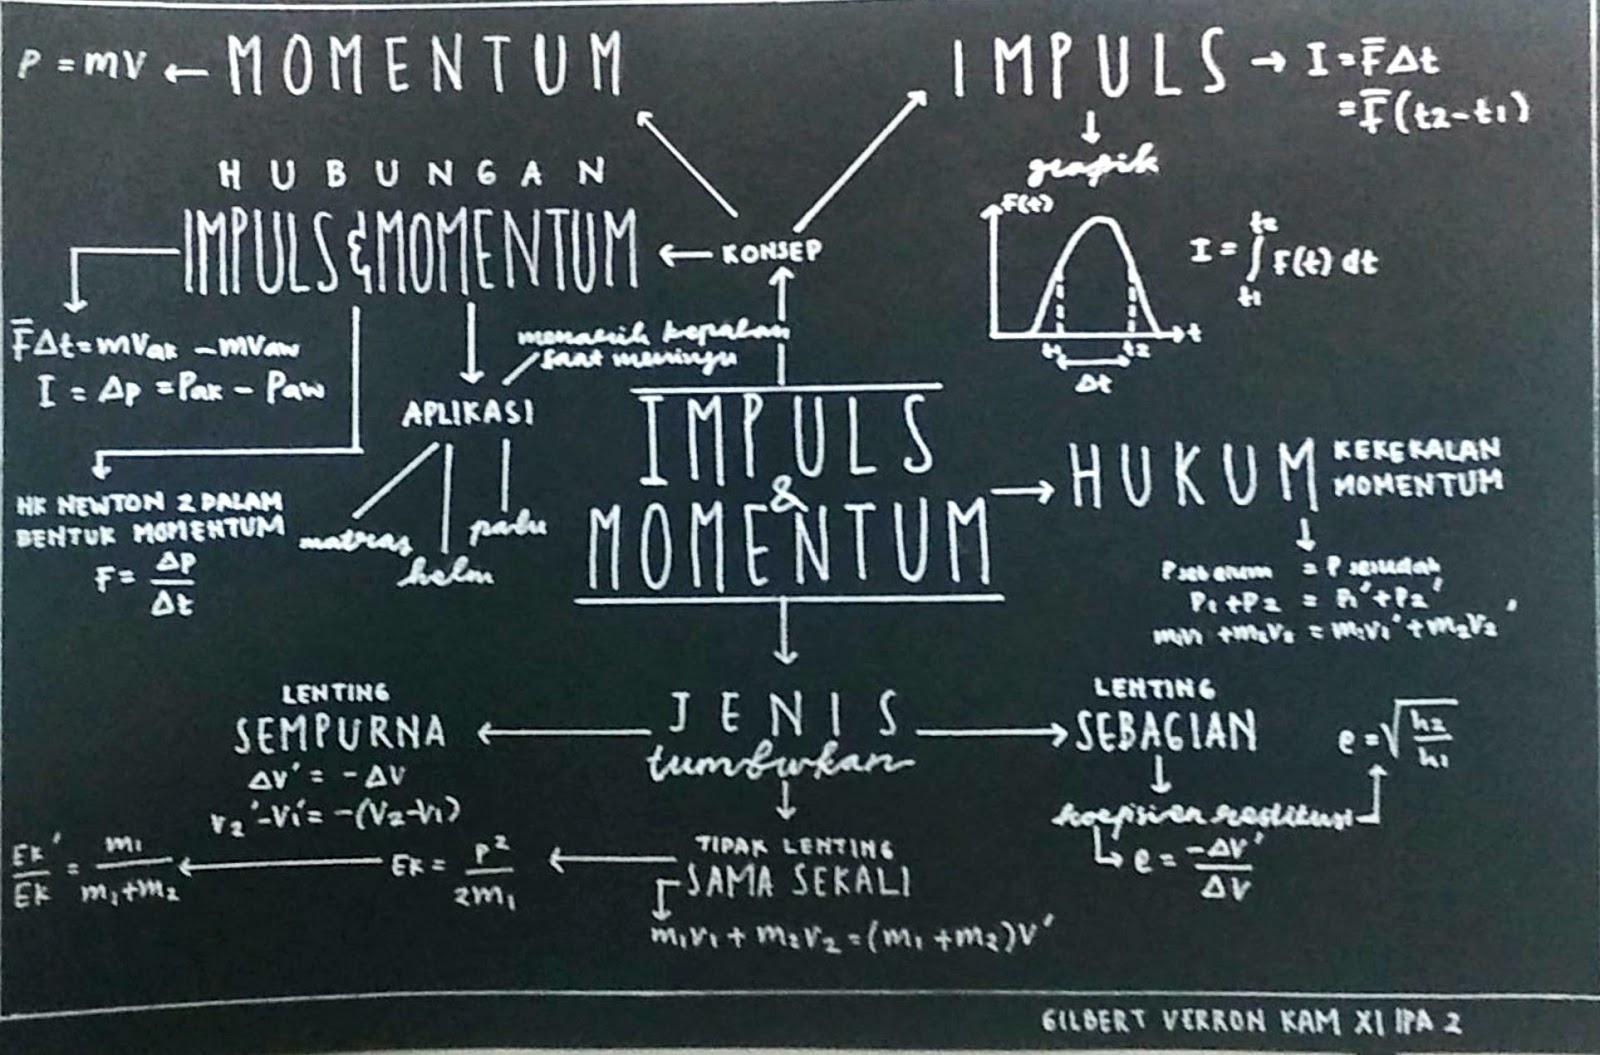 P = mv ← MOMENTUM
IMPULS → I = F̅Δt
= F̅(t2-t1)
grafik
F(t)
t1
t2
t
Δt
I = ∫ F(t) dt
t2
t1
HUBUNGAN
IMPULS & MOMENTUM
KONSEP
F̅Δt = mVak - mVaw
I = Δp = Pak - Paw
HK NEWTON 2 DALAM
BENTUK MOMENTUM
F = Δp/Δt
menarik kepalan
saat meninju
APLIKASI
matras
helm
palu
IMPULS
&
MOMENTUM
HUKUM KEKEKALAN
MOMENTUM
Psebelum = Psesudah
P1+P2 = P1'+P2'
m1v1 + m2v2 = m1v1' + m2v2'
JENIS
tumbukan
LENTING
SEMPURNA
ΔV' = -ΔV
v2'-v1' = -(v2-v1)
LENTING
SEBAGIAN
koefisien restitusi
e = √h2/h1
e = -ΔV'/ΔV
TIDAK LENTING
SAMA SEKALI
m1v1 + m2v2 = (m1+m2)v'
EK = P²/2m1
EK'/EK = m1/m1+m2
GILBERT VERRON KAM XI IPA 2